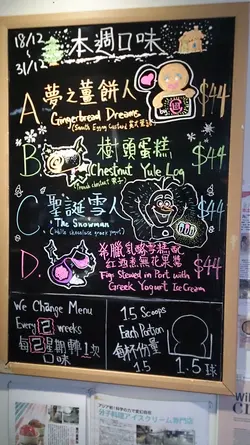 18/12
~
31/12
本週口味
A. 夢之薑餅人
Gingerbread Dreams
$44
B. 樹頭蛋糕
Chestnut Yule Log
(French chestnut 栗子)
$44
C. 聖誕雪人
The Snowman
(White chocolate greek yogurt)
$44
D. 希臘乳酪雪糕配
紅酒煮無花果醬
Figs Stewed in Port with
Greek Yogurt Ice Cream
$44
We Change Menu
Every 2 weeks
每2星期轉1次
口味
1.5 Scoops
Each Portion
每杯份量
1.5
1.5球